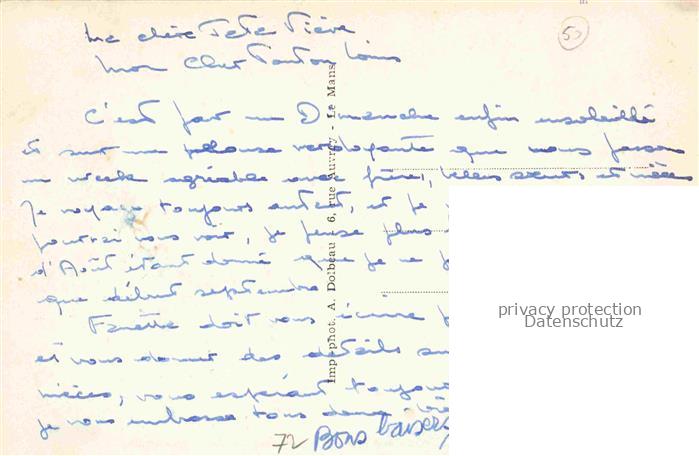 Ma chère Tata Viève
Mon Cher Tonton Louis
50
C'est par un Dimanche enfin ensoleillé
et sur une pelouse verdoyante que nous passons
un week agréable avec frères, belles sœurs et nièces
Je voyage toujours autant, et je
pourrai vous voir, je pense plus
d'Août étant donné que je ne
que début septembre
Fanette doit vous écrire
et vous donner des détails
nièces, vous espérant
je vous embrasse tous deux
72 Bons baisers
Imp.-phot. A. Dolbeau - 6, rue Auvray - Le Mans
privacy protection
Datenschutz